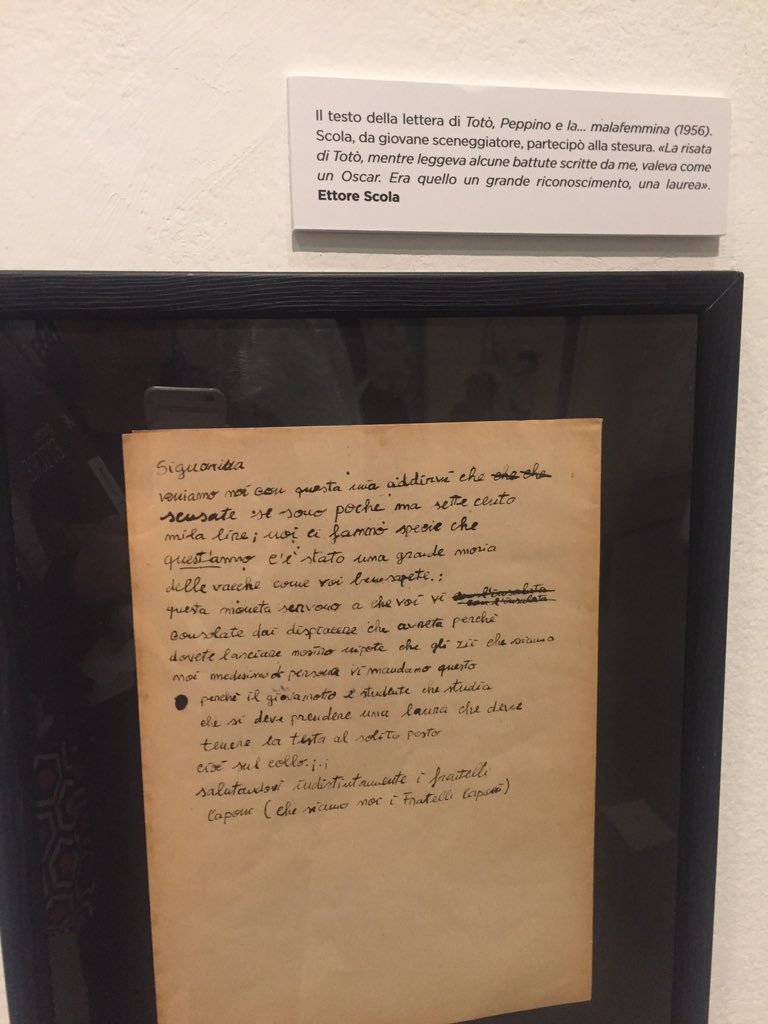 Il testo della lettera di Totò, Peppino e la... malafemmina (1956).
Scola, da giovane sceneggiatore, partecipò alla stesura. «La risata
di Totò, mentre leggeva alcune battute scritte da me, valeva come
un Oscar. Era quello un grande riconoscimento, una laurea».
Ettore Scola
Signorina
veniamo noi con questa mia addirvi che che che
scusate se sono poche ma sette cento
mila lire; noi ci fanno specie che
quest'anno c'è stato una grande moria
delle vacche come voi ben sapete.:
questa moneta servono a che voi vi con l'insalata
con l'insalata
consolate dai dispiacere che avreta perché
dovete lasciare nostro nipote che gli zii che siamo
noi medesimo di persona vi mandano questo
perché il giovanotto è studente che studia
che si deve prendere una laura che deve
tenere la testa al solito posto
cioè sul collo.;.;
salutandovi indistintamente i fratelli
Caponi (che siamo noi i Fratelli Caponi)